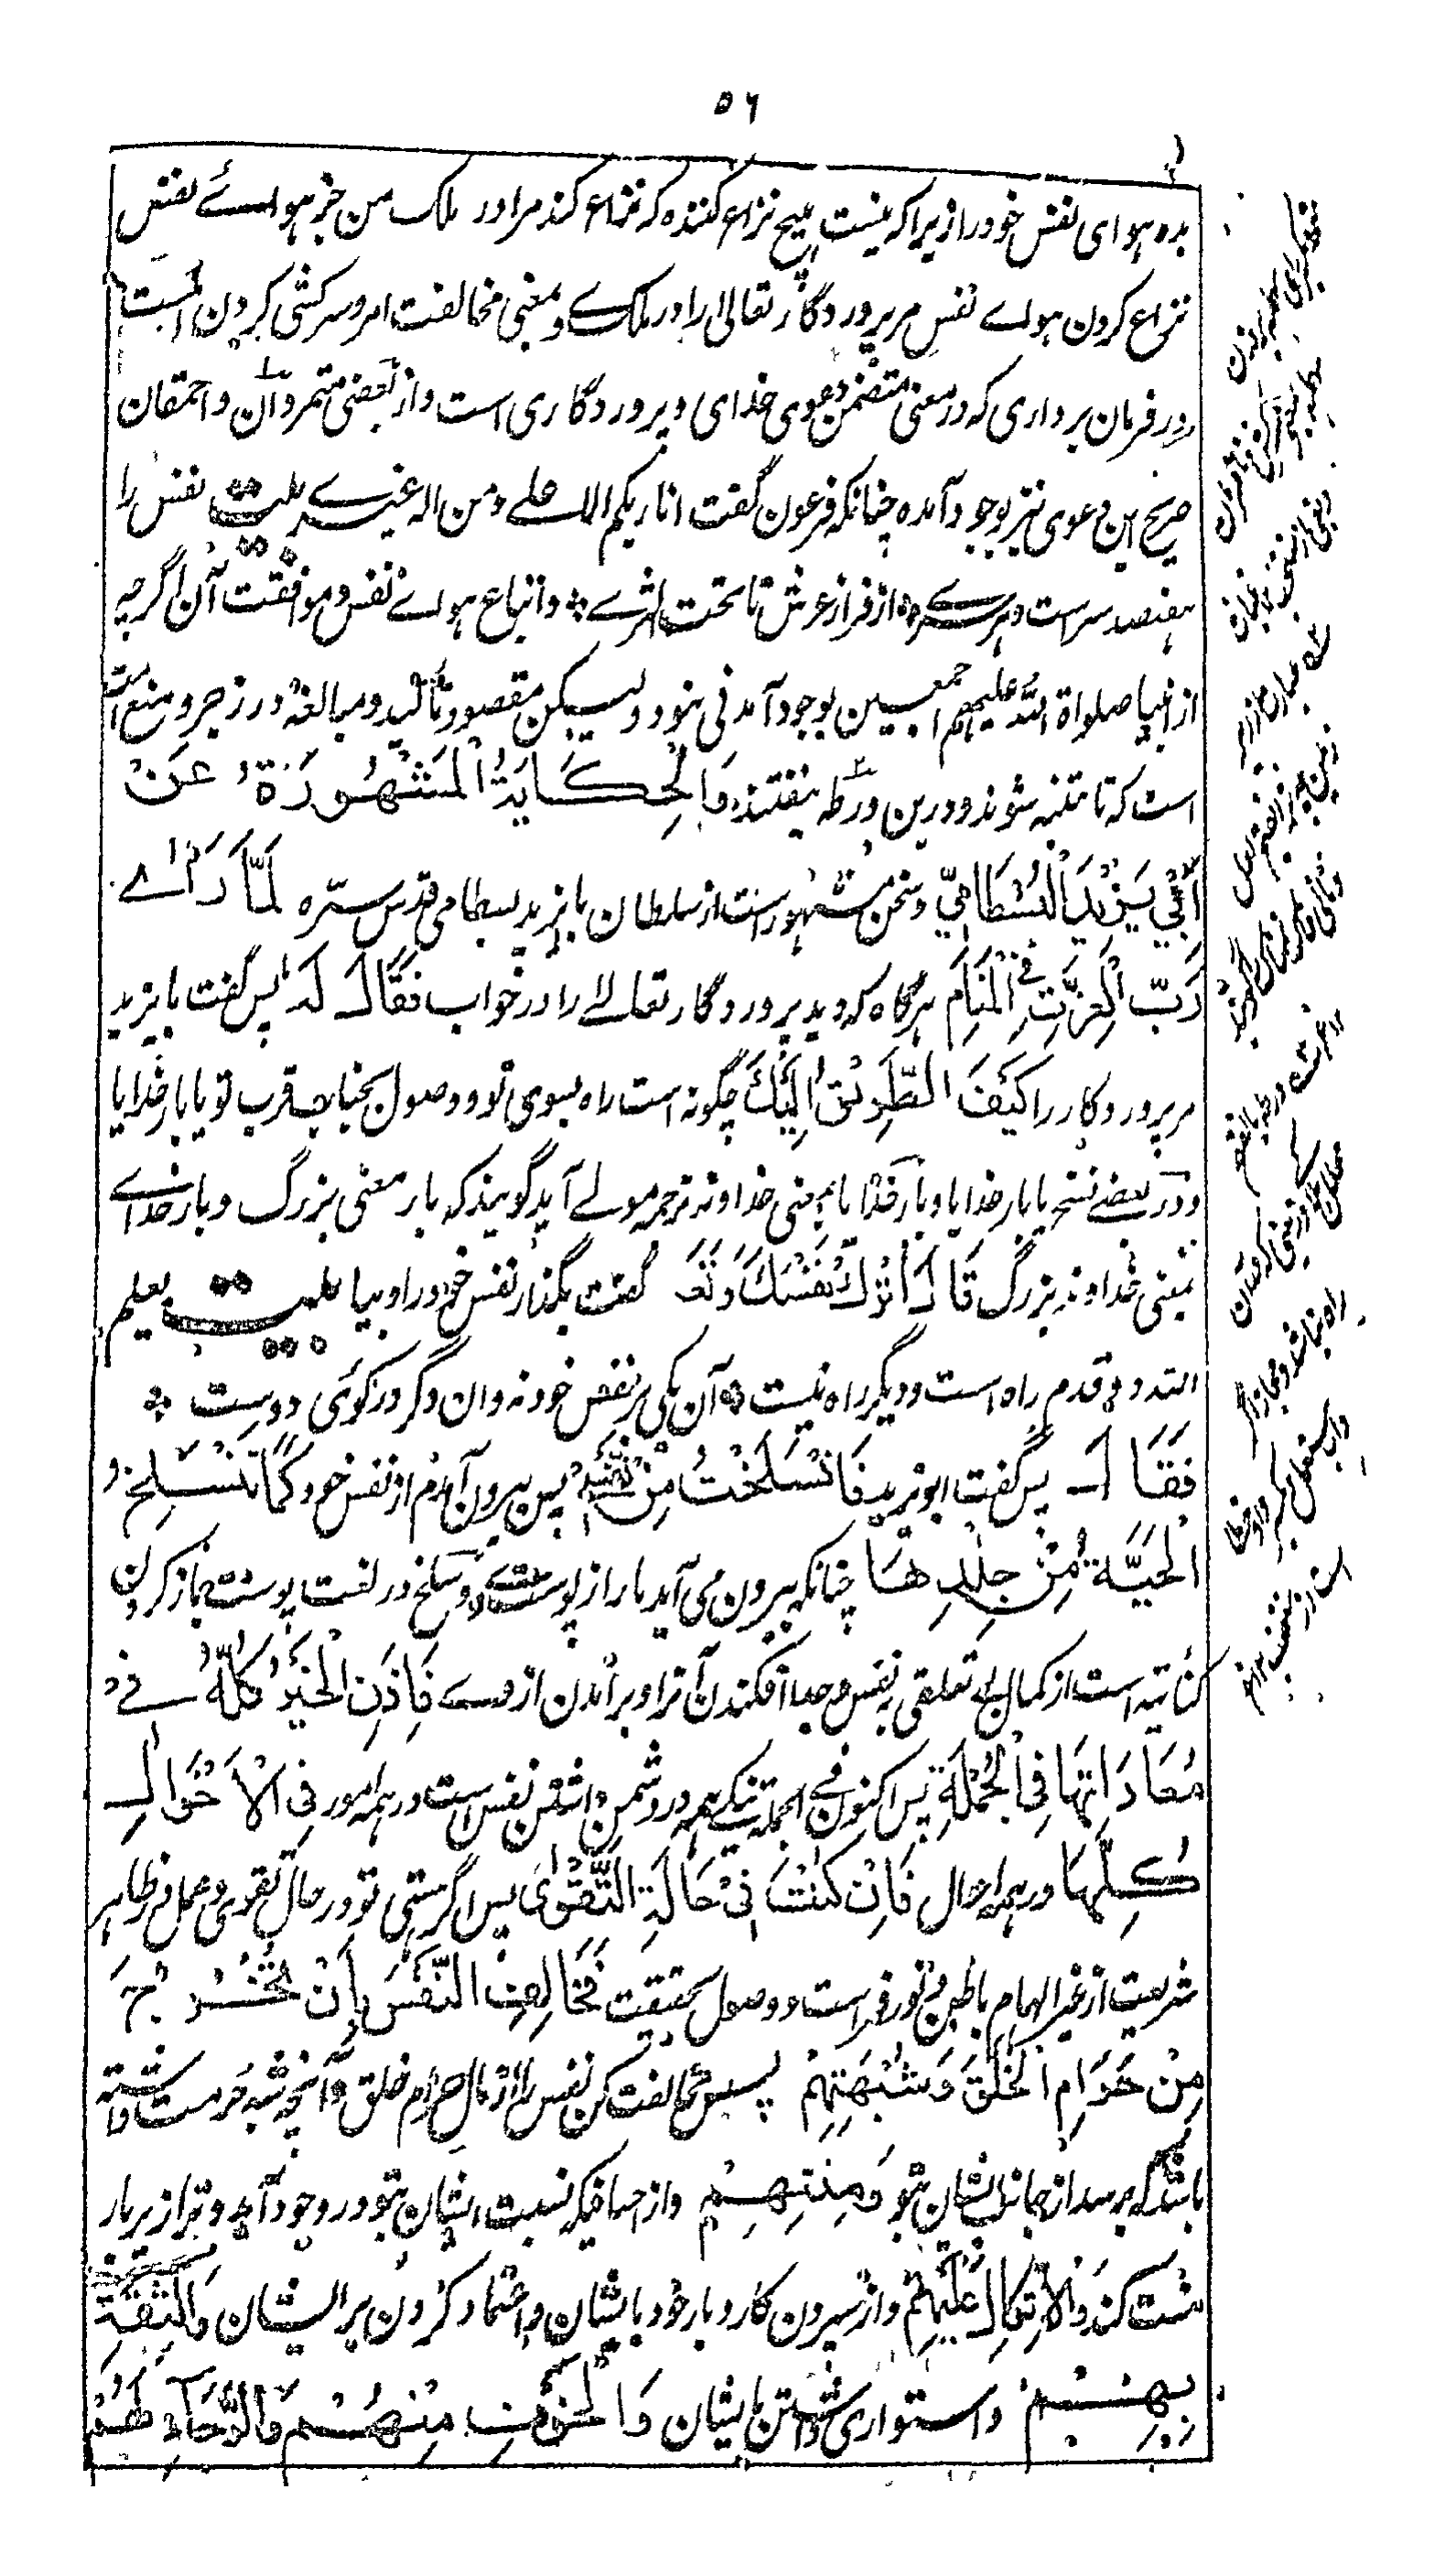 ۵۶
بده هوای نفس خود را زیرا که نیست هیچ نزاع کننده که نزاع کند مرا در ملک من جز هوائے نفس
نزاع کردن هواے نفس مر پروردگار تعالیٰ را در ملک وے معنی مخالفت امر و سرکشی کردن است
در فرمان برداری که در معنی متضمن دعوی خدای و پروردگاری است و از بعضی متمردان و احمقان
صریح این دعوی نیز بوجود آمده چنانکه فرعون گفت انا ربکم الاعلے و من اله غیرے بیت نفس را
هفتصد سر است و هر سرے ٭ از فراز عرش تا تحت الثرے ٭ و اتباع هواے نفس و موافقت آن اگرچه
از انبیا صلواة الله علیهم اجمعین بوجود آمدنی نبود ولیکن مقصود تاکید و مبالغه در زجر و منع امت
است که تا متنبه شوند و درین ورطه نیفتند وَالْحِكَايَةُ الْمَشْهُورَةُ عَنْ
أَبِي يَزِيْدَ الْبُسْطَامِيِّ و سخن مشهور است از سلطان بایزید بسطامی قدس سرّه لَمَّا رَاٰے
رَبَّ الْعِزَّتِ فِي الْمَنَامِ هرگاه که دید پروردگار تعالےٰ را در خواب فَقَالَ لَهٗ پس گفت بایزید
مر پروردگار را كَيْفَ الطَّرِيْقُ اِلَيْكَ چگونه است راه بسوی تو و وصول بجناب قرب تو یا بار خدایا
و در بعضے نسخ یا بار خدایا و بار خدا یا بمعنی خداوند ترجمه مولے آید گویند که بار معنی بزرگ و بار خداے
بمعنی خداوند بزرگ قَالَ اُتْرُكْ نَفْسَكَ وَتَعَالَ گفت بگذار نفس خود را و بیا بیت یعلم
الله دو قدم راه است و دیگر راه نیست ٭ آن یکی بر نفس خود نه وان دگر در کوئی دوست ٭
فَقَالَ پس گفت ابو یزید فَانْسَلَخْتُ مِنْ نَفْسِیْ پس بیرون آمدم از نفس خود كَمَا تَنْسَلِخُ
الْحَيَّةُ مِنْ جِلْدِهَا چنانکه بیرون می آید مار از پوست وے و سلخ در لغت پوست باز کردن
کنایه است از کمال بے تعلقی به نفس و جدا افکندن آنرا و برآمدن از وے فَاِذَنِ الْخَيْرُ كُلُّهٗ فِےْ
مُعَادَاتِهَا فِي الْجُمْلَةِ پس اکنون فے الجمله نیکے همه در دشمن داشتن نفس است در همه امور فِی الْاَحْوَالِ
كُلِّهَا در همه احوال فَاِنْ كُنْتَ فِیْ حَالَةِ التَّقْوٰى پس اگر هستی تو در حال تقوی و عمل بر ظاهر
شریعت از غیر الهام باطن و نور فراست و وصول بحقیقت فَخَالِفِ النَّفْسَ بِاَنْ تَخْرُجَ
مِنْ حَرَامِ الْخَلْقِ وَشُبْهَتِهِمْ پس مخالفت کن نفس را از مال حرام خلق و آنچه شبه حرمت داشته
باشد که برسد از جانب ایشان بتو وَمِنَّتِهِمْ و از احسانیکه نسبت ایشان بتو در وجود آمد و ترا زیر بار
منت کند وَالْاِتِّكَالِ عَلَيْهِمْ و از سپردن کار و بار خود بایشان و اعتماد کردن بر ایشان وَالثِّقَةِ
بِهِمْ و استواری داشتن بایشان وَالْخَوْفِ مِنْهُمْ وَالرَّجَاءِ لَهُمْ